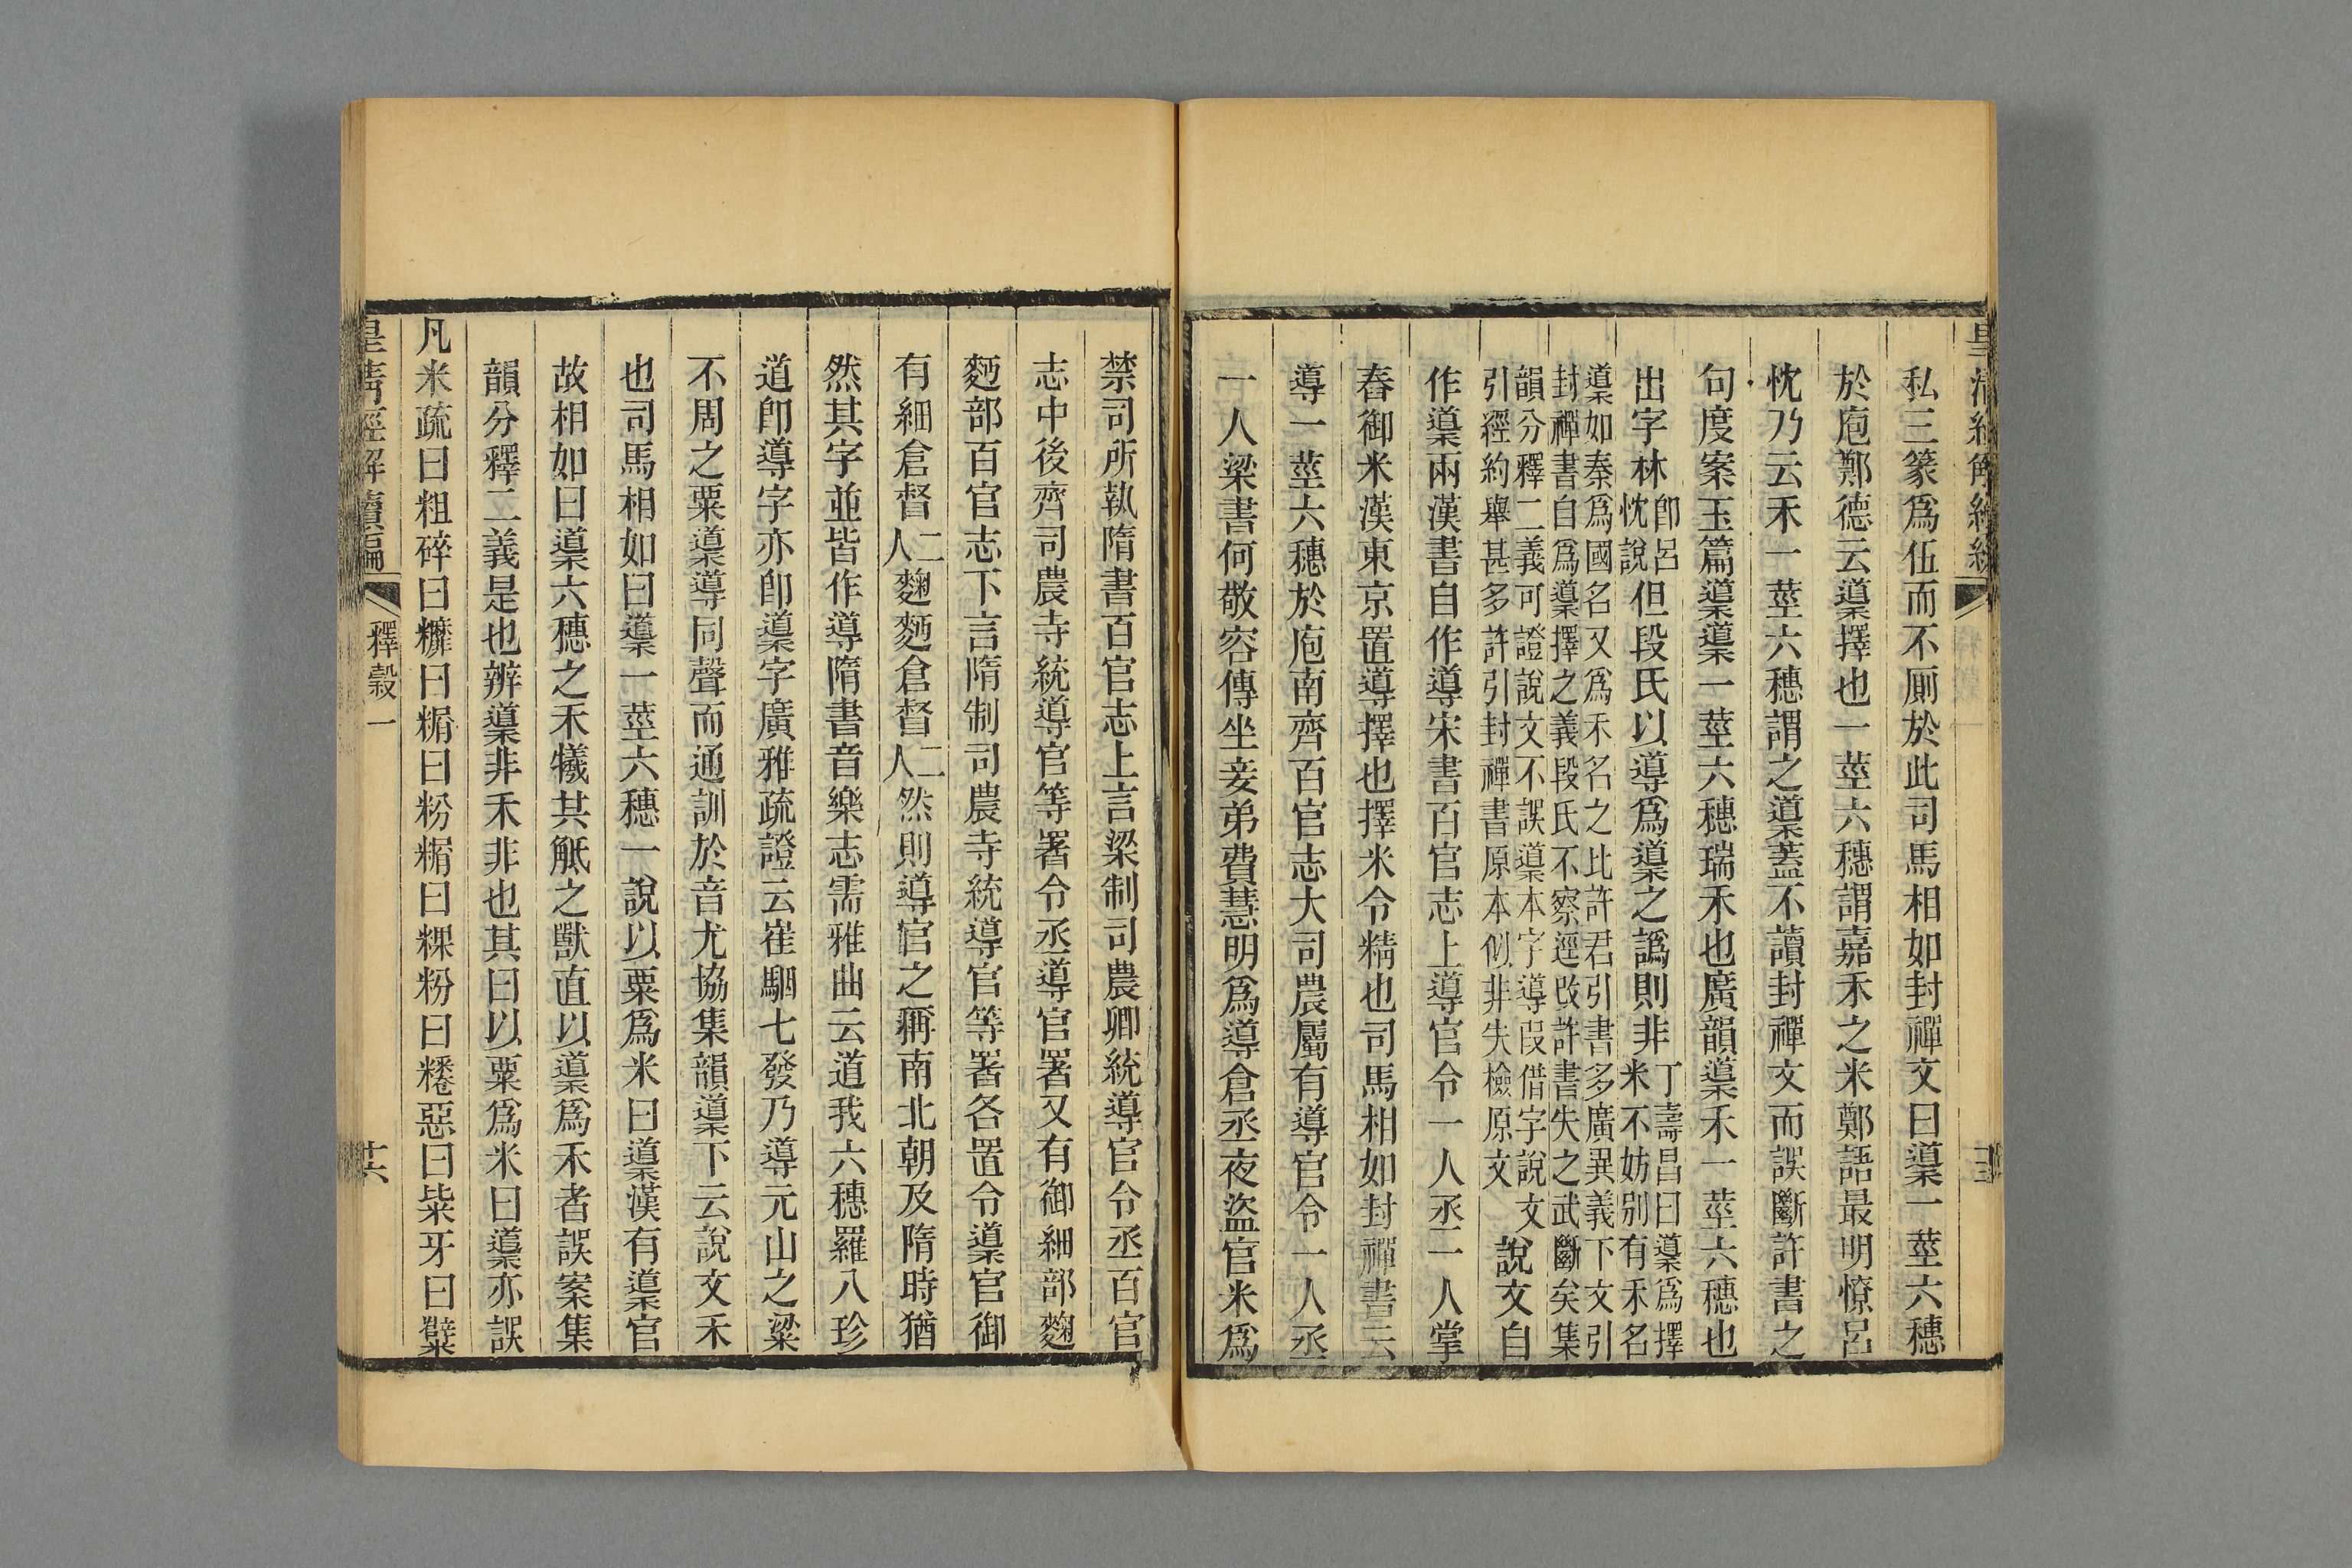 私三篆爲伍而不厠於此司馬相如封禪文曰䆃一莖六穗
於庖鄭德云䆃擇也一莖六穗謂嘉禾之米鄭語最明憭呂
忱乃云禾一莖六穗謂之䆃蓋不讀封禪文而誤斷許書之
句度案玉篇䆃䆃一莖六穗瑞禾也廣韻䆃禾一莖六穗也
出字林卽呂忱說但段氏以導爲䆃之譌則非丁壽昌曰䆃爲擇米不妨別有禾名
䆃如秦爲國名又爲禾名之比許君引書多廣異義下文引
封禪書自爲䆃擇之義段氏不察逕改許書失之武斷矣集
韻分釋二義可證說文不誤䆃本字導叚借字說文
引經約舉甚多許引封禪書原本似非失檢原文
說文自
作䆃兩漢書自作導宋書百官志上導官令一人丞一人掌
舂御米漢東京置導擇也擇米令精也司馬相如封禪書云
導一莖六穗於庖南齊百官志大司農屬有導官令一人丞
一人梁書何敬容傳坐妾弟費慧明爲導倉丞夜盜官米爲
禁司所執隋書百官志上言梁制司農卿統導官令丞百官
志中後齊司農寺統導官等署令丞導官署又有御細部麴
麪部百官志下言隋制司農寺統導官等署各置令䆃官御
有細倉督二人麴麪倉督二人然則導官之稱南北朝及隋時猶
然其字並皆作導隋書音樂志需雅曲云道我六穗羅八珍
道卽導字亦卽䆃字廣雅疏證云崔駰七發乃導元山之粱
不周之粟䆃導同聲而通訓於音尤協集韻䆃下云說文禾
也司馬相如曰䆃一莖六穗一說以粟爲米曰䆃漢有䆃官
故相如曰䆃六穗之禾犧其觝之獸直以䆃爲禾者誤案集
韻分釋二義是也辨䆃非禾非也其曰以粟爲米曰䆃亦誤
凡米疏曰粗碎曰䊳曰糏曰粉糏曰粿粉曰䊎惡曰粊牙曰糱
皇清經解續編
釋穀一
卄六